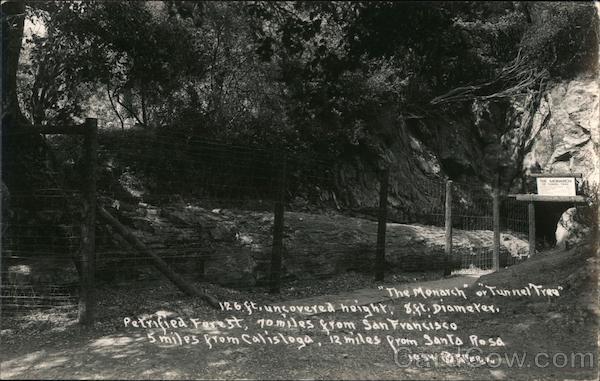 THE MONARCH
"The Monarch" or "Tunnel Tree"
126 ft. uncovered height, 8 ft. Diameter.
Petrified Forest, 70 miles from San Francisco
5 miles from Calistoga, 12 miles from Santa Rosa
CardCow.com